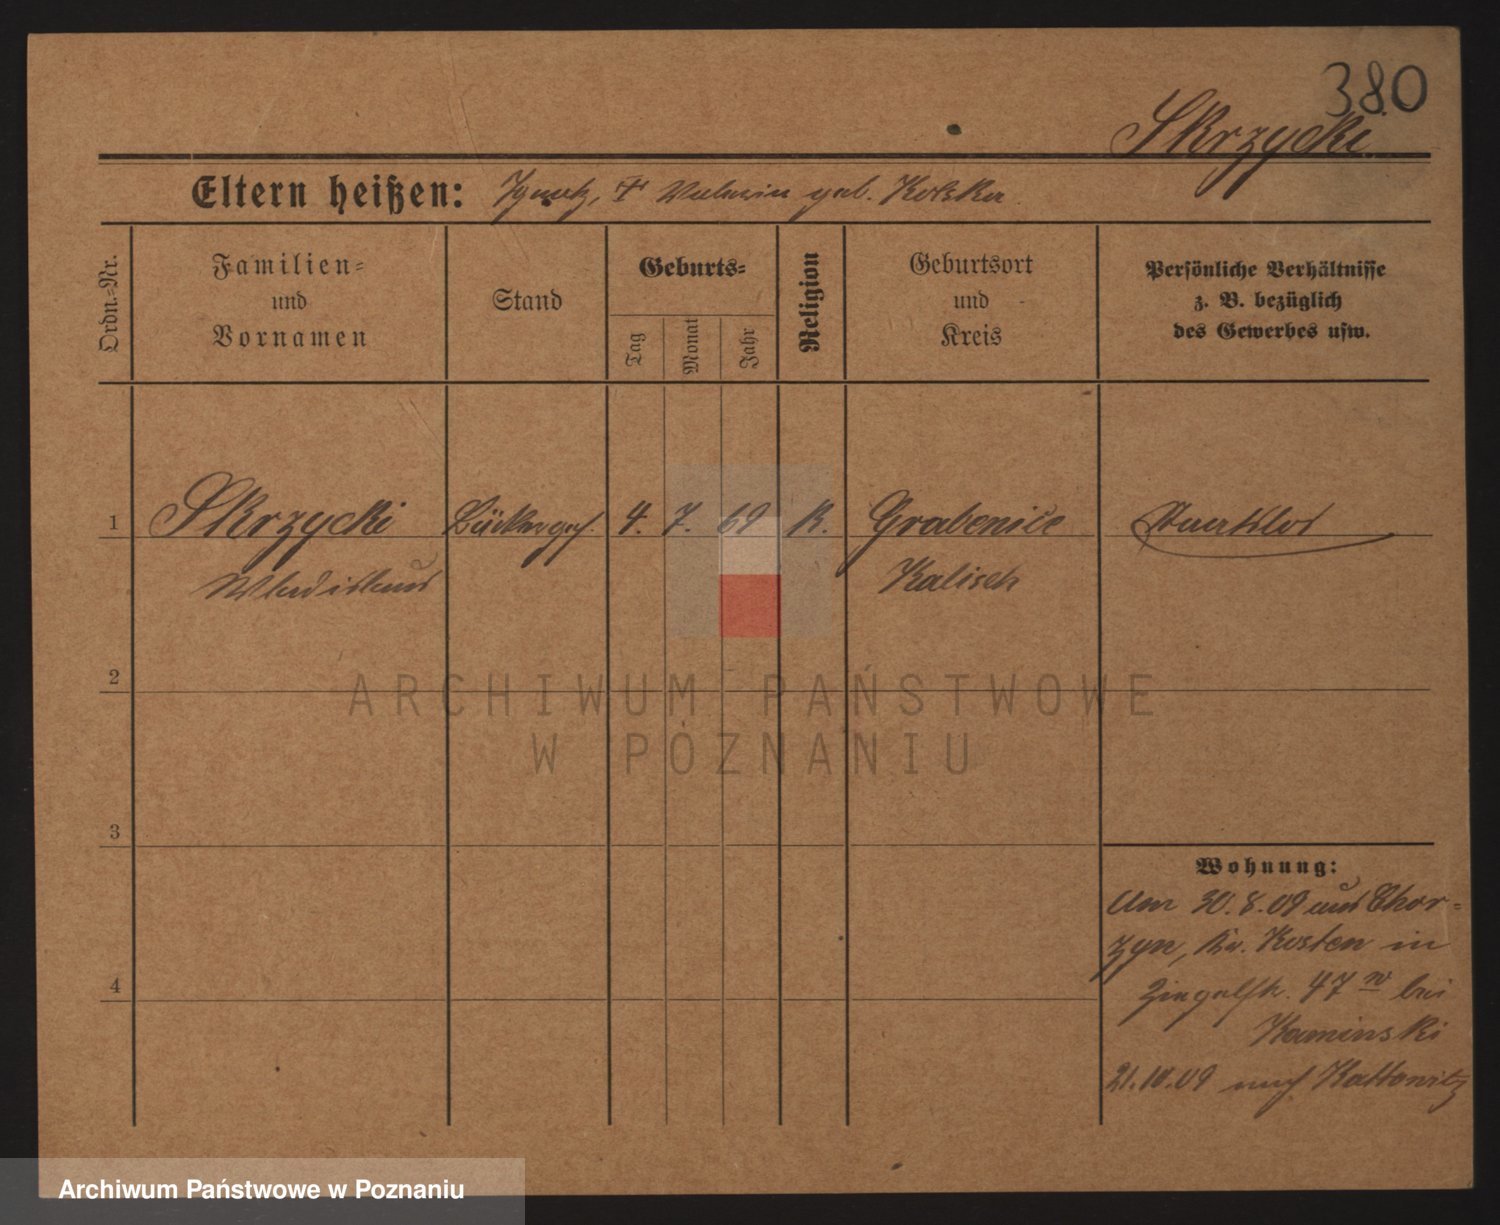 380
Skrzycki
Eltern heißen: Ignatz, † geb. Kotska
Ordn.-Nr.
Familien-
und
Vornamen
Stand
Geburts-
Tag
Monat
Jahr
Religion
Geburtsort
und
Kreis
Persönliche Verhältnisse
z. B. bezüglich
des Gewerbes usw.
1 Skrzycki Bäckerges. 4. 7. 69 K. Grabenice
Wladislaus Kalisch
2
ARCHIWUM PAŃSTWOWE
W POZNANIU
3
Wohnung:
Am 30.8.09 aus Chor-
zyn, Kr. Kosten in
4
Ziegelstr. 47 bei
Kaminski
21.10.09 nach Kattowitz
Archiwum Państwowe w Poznaniu